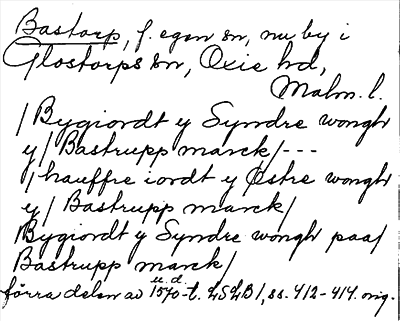 Bastorp, f. egen sn, nu by i
Glostorps sn, Oxie hd,
Malm. l.
/Bygiordt y Syndre wongh
y/ Bastrupp marck/---
/hauffre iordt y Østre wongh
y/ Bastrupp marck/
/Bygiordt y Syndre wongh paa/
Bastrupp marck/
u. d.
förra delen av 1570-t. LSLB1, ss. 412-414. orig.